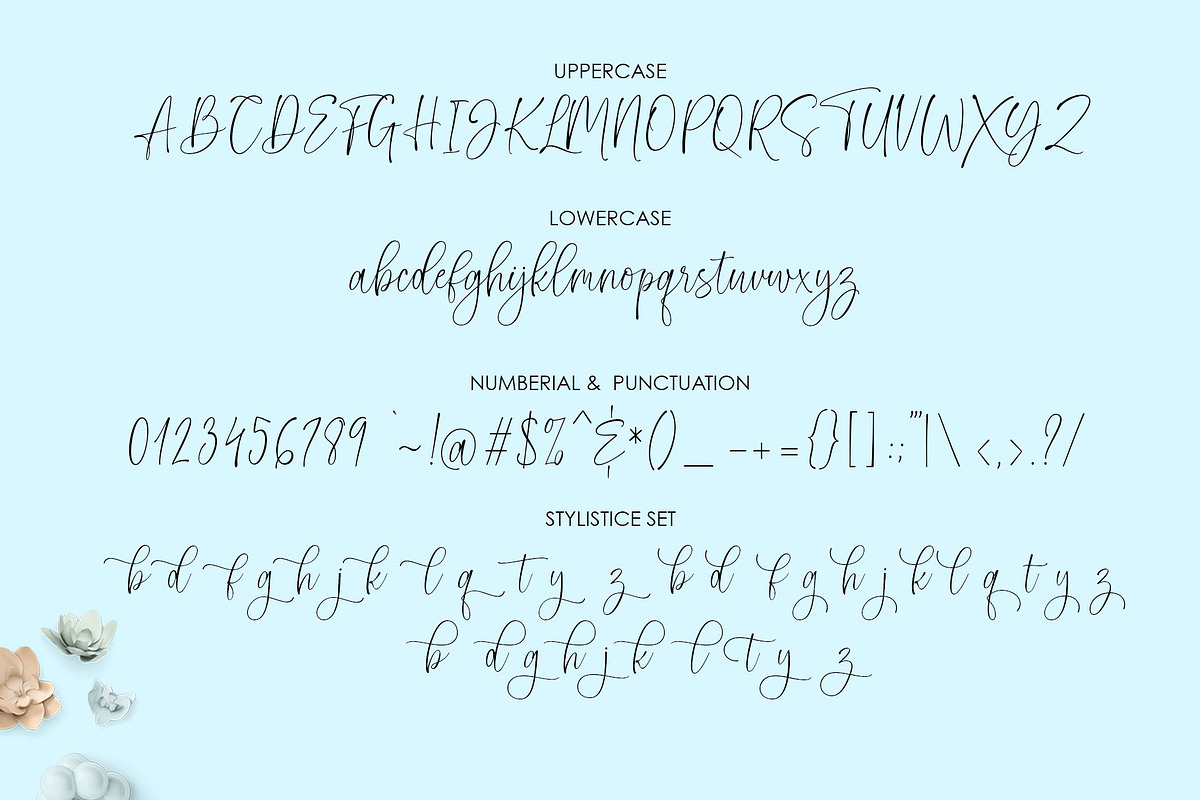 UPPERCASE
ABCDEFGHIJKLMNOPQRSTUVWXYZ
LOWERCASE
abcdefghijklmnopqrstuvwxyz
NUMBERIAL & PUNCTUATION
0123456789 `~!@#$%^&*()_ -+={}[]:;"'|\<,>.?/
STYLISTICE SET
b d f g h j k l q t y z b d f g h j k l q t y z
b d g h j k l t y z